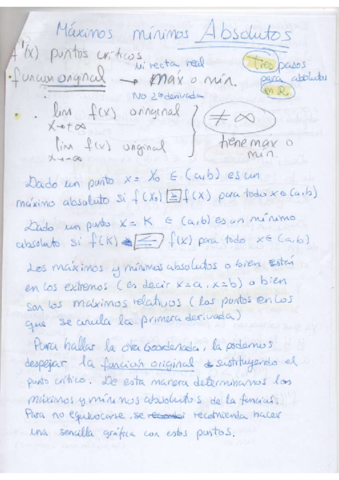 Máximos mínimos Absolutos
f'(x) puntos críticos
ni recta real
Tico pasos
función original → max o min.
para absolutos
No 2ª derivada
en R.
lim f(x) original
x→+∞
≠ ∞
tiene max o
min.
lim f(x) original
x→-∞
Dado un punto x = x₀ ∈ (a,b) es un
máximo absoluto si f(x₀) ≥ f(x) para todo x ∈ (a,b)
Dado un punto x = K ∈ (a,b) es un mínimo
absoluto si f(K) ≤ f(x) para todo x ∈ (a,b)
Los máximos y mínimos absolutos o bien están
en los extremos (es decir x=a, x=b) o bien
son los máximos relativos (los puntos en los
que se anula la primera derivada)
Para hallar la otra coordenada, la podemos
despejar la función original sustituyendo el
punto crítico. De esta manera determinamos los
máximos y mínimos absolutos de la función.
Para no equivocarse, se recomienda hacer
una sencilla gráfica con estos puntos.